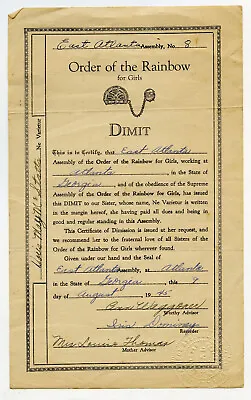 East Atlanta Assembly, No. 8
Order of the Rainbow
for Girls
DIMIT
This is to Certify, that East Atlanta
Assembly of the Order of the Rainbow for Girls, working at
Atlanta, in the State of
Georgia, and of the obedience of the Supreme
Assembly of the Order of the Rainbow for Girls, has issued
this DIMIT to our Sister, whose name, Ne Varietur is written
in the margin hereof, she having paid all dues and being in
good and regular standing in this Assembly.
This Certificate of Dimission is issued at her request, and
we recommend her to the fraternal love of all Sisters of the
Order of the Rainbow for Girls wheresoever found.
Given under our hand and the Seal of
East Atlanta Assembly, at Atlanta
State of Georgia this 9
day of August 1945
Worthy Advisor
Recorder
Mrs Louise Thomas
Mother Advisor
Ne Varietur